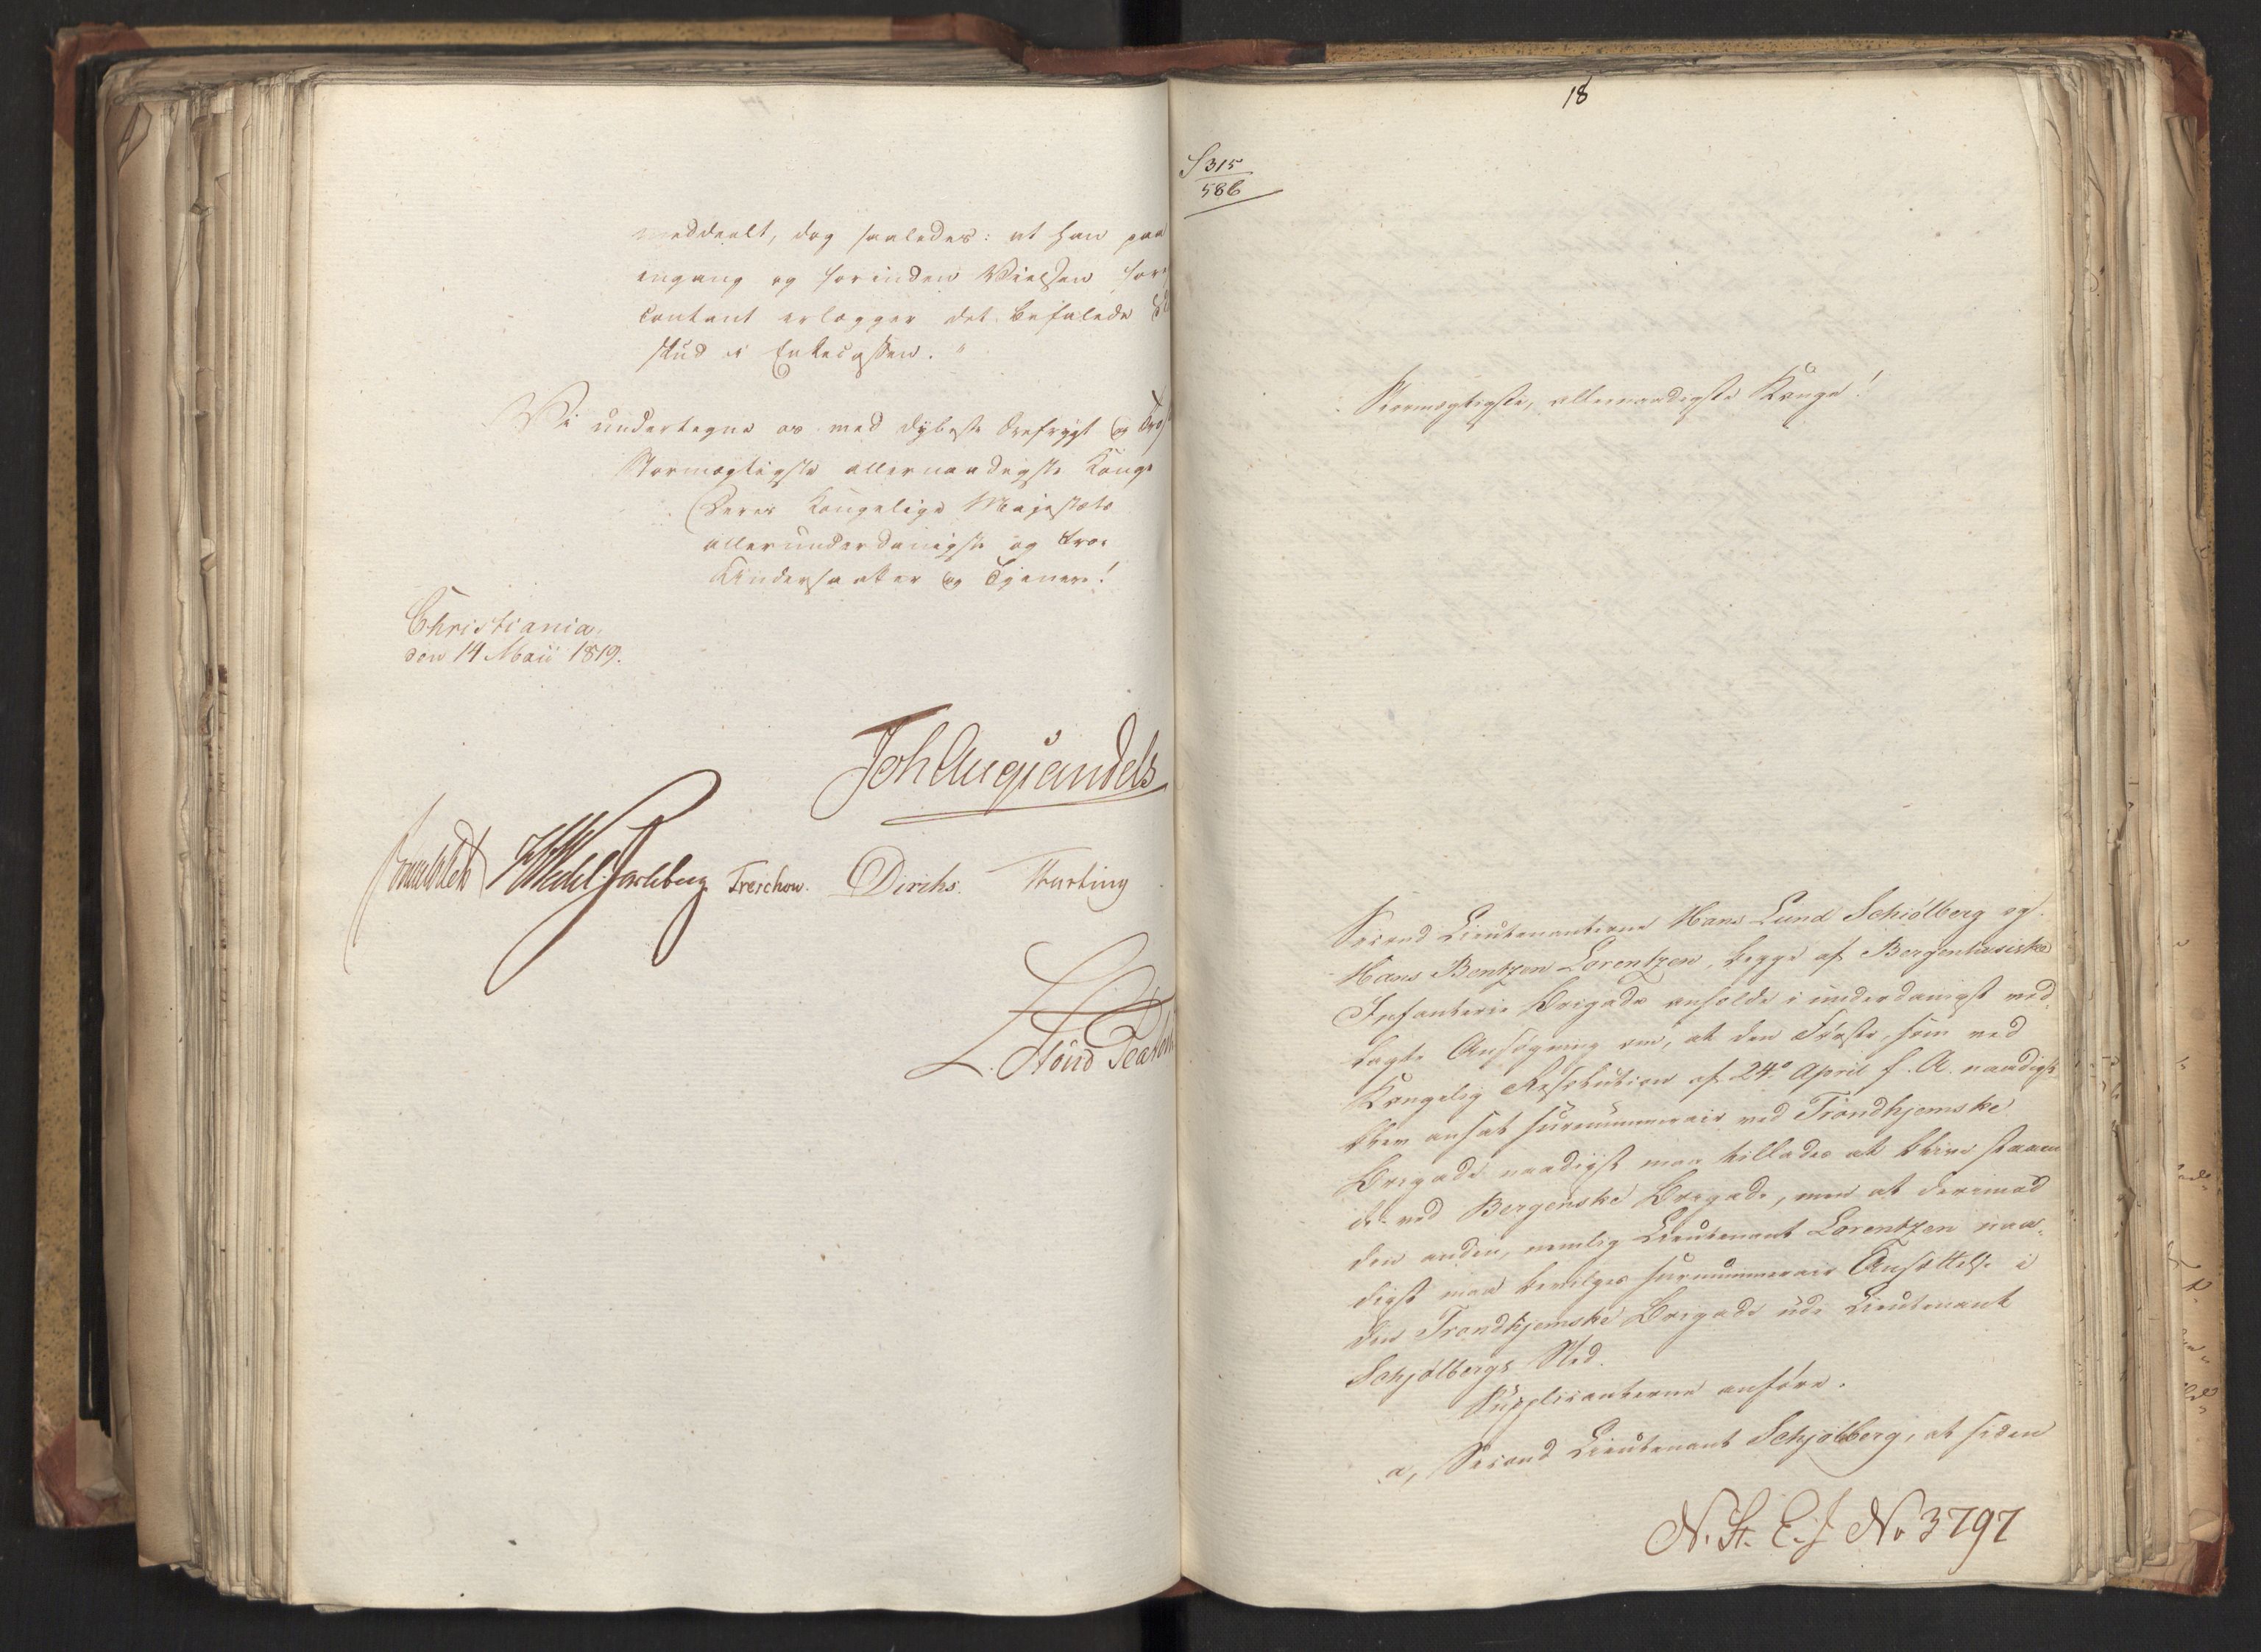 meddeelt, dog saaledes: at han paa
engang og forinden Vielsen for
contant erlægger det befalede
skud i Enkecassen. "
Vi undertegne os med dybeste Ærefrygt og
Stormægtigste allernaadigste Konge
Deres Kongelige Majestæts
allerunderdanigste og troe
Undersaatter og Tjenere!
Christiania
den 14 Maii 1819.
Joh Aug Sandels
Sommerfeldt HWedel Jarlsberg Treschow. Diriks. Fasting
L. Stoud Platou
18
S 315
586
Stormægtigste, allernaadigste Konge!
Second Lieutenanterne Hans Lund Schiölberg og
Hans Bentzen Lorentzen, begge af Bergenhusiske
Infanterie Brigade ansøge i underdanigst ved
lagte Ansøgning om, at den Første, som ved
Kongelig Resolution af 24de April f. A. naadigst
blev ansat surnummerair ved Trondhjemske
Brigade naadigst maa tillades at blive staaen
de ved Bergenske Brigade, men at derimod
den anden, nemlig Lieutenant Lorentzen naa-
digst maa bevilges surnummerair Ansættelse i
den Trondhjemske Brigade udi Lieutenant
Schjølbergs Sted.
Supplicanterne anføre:
a, Second Lieutenant Schjølberg, at siden
N. St. E. J No 3797